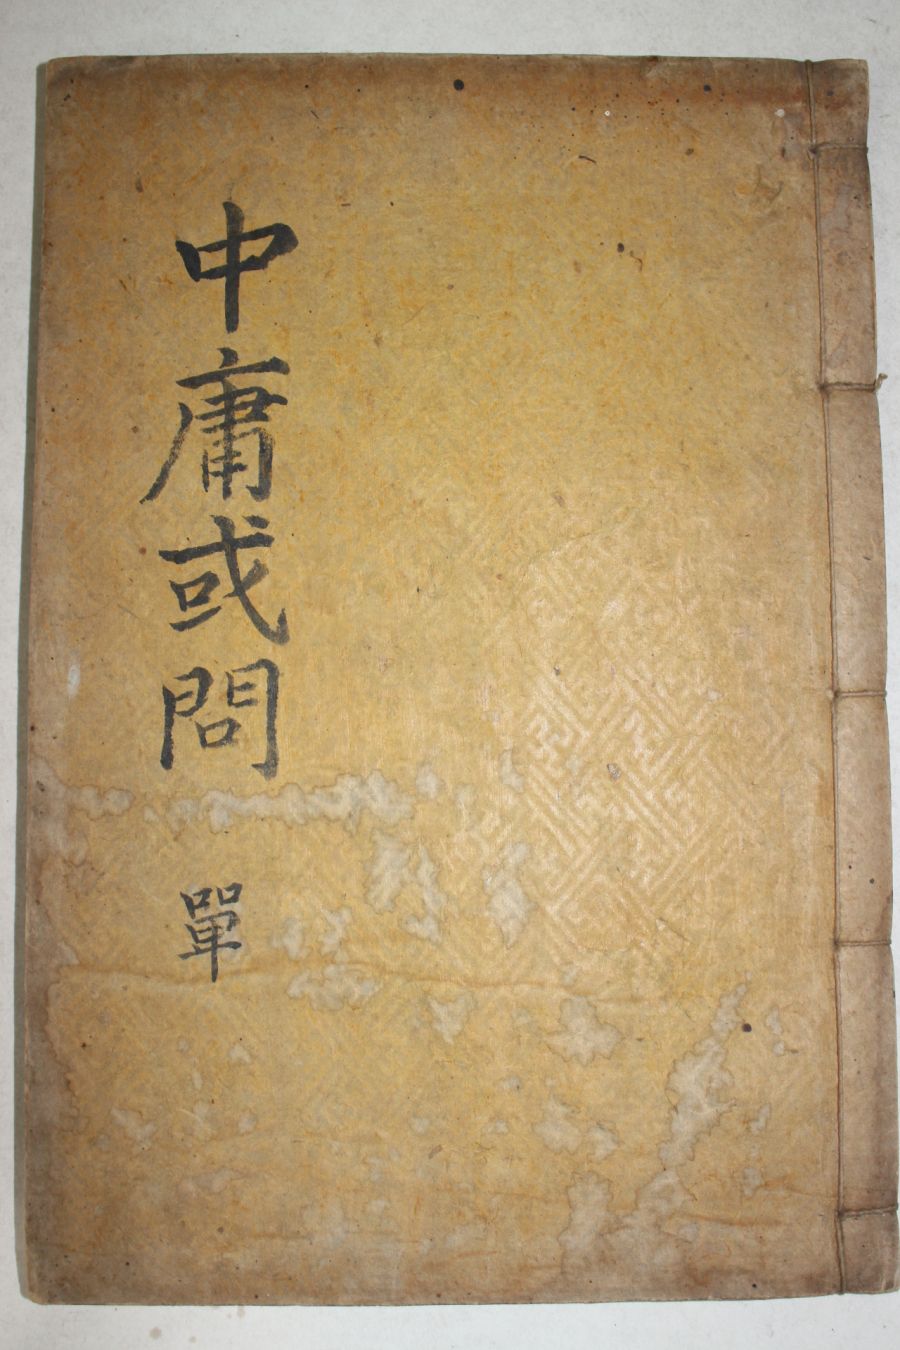 中庸或問
單